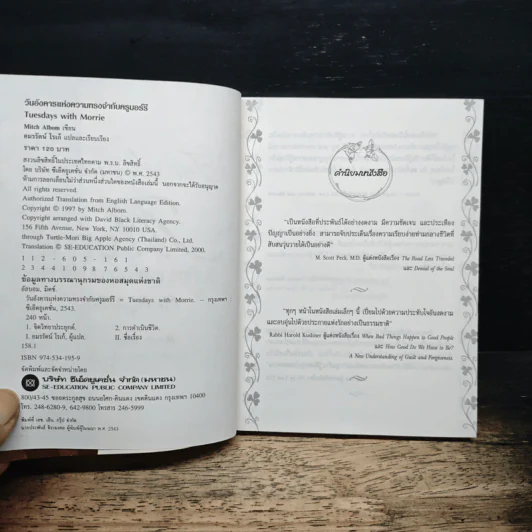 วันอังคารแห่งความทรงจำกับครูมอร์รี
Tuesdays with Morrie
Mitch Albom เขียน
อมรรัตน์ โรเก้ แปลและเรียบเรียง
ราคา 120 บาท
สงวนลิขสิทธิ์ในประเทศไทยตาม พ.ร.บ. ลิขสิทธิ์
โดย บริษัท ซีเอ็ดยูเคชั่น จำกัด (มหาชน) © พ.ศ. 2543
ห้ามการลอกเลียนไม่ว่าส่วนหนึ่งส่วนใดของหนังสือเล่มนี้ นอกจากจะได้รับอนุญาต
All rights reserved.
Authorized Translation from English Language Edition.
Copyright © 1997 by Mitch Albom.
Copyright arranged with David Black Literacy Agency.
156 Fifth Avenue, New York, NY 10010 USA.
through Tuttle-Mori Big Apple Agency (Thailand) Co., Ltd.
Translation © SE-EDUCATION Public Company Limited, 2000.
1 1 2 - 6 0 5 - 1 6 1
2 3 4 4 1 0 9 8 7 6 5 4 3
ข้อมูลทางบรรณานุกรมของหอสมุดแห่งชาติ
อัลบอม, มิตช์.
วันอังคารแห่งความทรงจำกับครูมอร์รี = Tuesdays with Morrie. -- กรุงเทพฯ
ซีเอ็ดยูเคชั่น, 2543.
240 หน้า.
1. จิตวิทยาประยุกต์. 2. การดำเนินชีวิต.
I. อมรรัตน์ โรเก้, ผู้แปล. II. ชื่อเรื่อง
158.1
ISBN 974-534-195-9
จัดพิมพ์และจัดจำหน่ายโดย
บริษัท ซีเอ็ดยูเคชั่น จำกัด (มหาชน)
SE-EDUCATION PUBLIC COMPANY LIMITED
800/43-45 ซอยตระกูลสุข ถนนอโศก-ดินแดง เขตดินแดง กรุงเทพฯ 10400
โทร. 248-6280-9, 642-9800 โทรสาร 246-5999
คำนิยมหนังสือ
"เป็นหนังสือที่ประพันธ์ได้อย่างงดงาม มีความชัดเจน และประเทือง
ปัญญาเป็นอย่างยิ่ง สามารถจับประเด็นเรื่องความเรียบง่ายท่ามกลางชีวิตที่
สับสนวุ่นวายได้เป็นอย่างดี"
M. Scott Peck, M.D. ผู้แต่งหนังสือเรื่อง The Road Less Traveled
และ Denial of the Soul
"ทุกๆ หน้าในหนังสือเล่มเล็กๆ นี้ เปี่ยมไปด้วยความประทับใจอันงดงาม
และอบอุ่นไปด้วยประกายแห่งรักอย่างเป็นธรรมชาติ"
Rabbi Harold Kushner ผู้แต่งหนังสือเรื่อง When Bad Things Happen to Good People
และ How Good Do We Have to Be?
A New Understanding of Guilt and Forgiveness